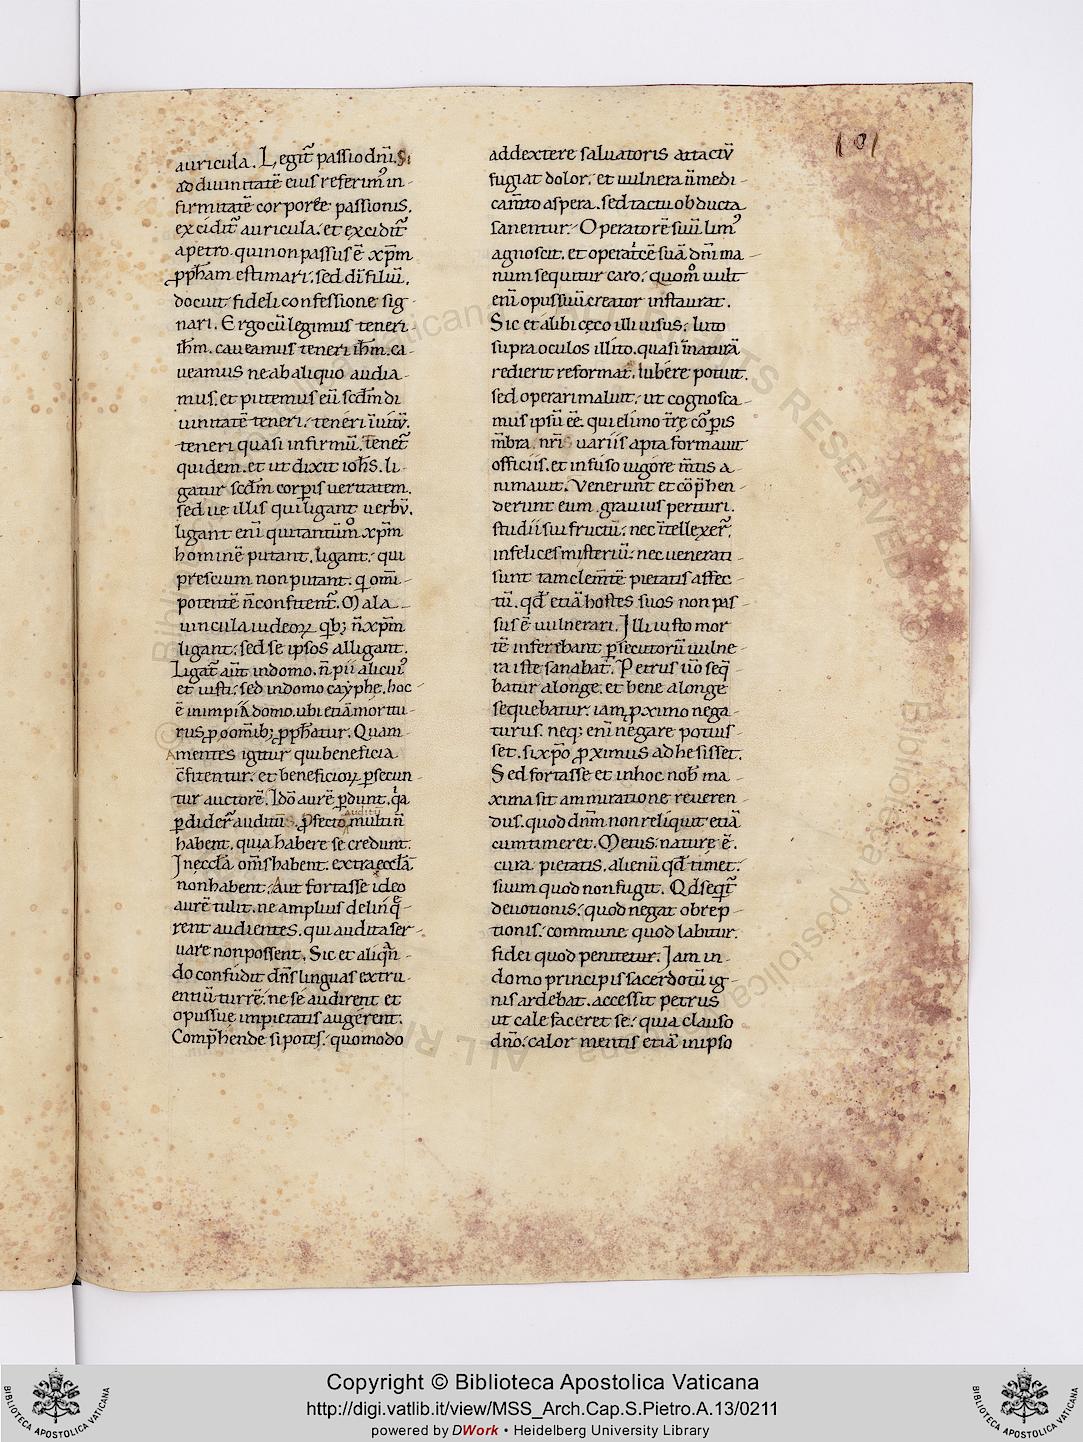 101
auricula. Legit᷑ passio dn̄i. Si
ad diuinitatē eius referim᷒ in-
firmitatē corporeę passionis.
excidit᷑ auricula. et excidit᷑
a petro. qui non passus ē xp̄m
ꝓph̄am estimari. sed dī filiū.
docuit fideli confessione sig-
nari. Ergo cū legimus teneri
ih̄m. caueamus teneri ih̄m. ca-
ueamus ne ab aliquo audia-
mus. et putemus eū scd̄m di
uinitatē teneri. teneri
teneri quasi infirmū. Tenet᷑
quidem. et ut dixit ioh̄s. li-
gatur scd̄m corꝑis ueritatem.
sed ue illis qui ligant uerbū.
ligant eni qui tantūm xp̄m
hominē putant. ligant. qui
prescium non putant. q omi-
potentē n̄ confitent᷑. Mala
uincula iudeoꝝ qb; n̄ xp̄m
ligant. sed se ipsos alligant.
Ligat᷑ aūt in domo. n̄ pii alicui᷒
et iusti. sed in domo cayphe. hoc
ē in impii domo. ubi etiā moritu-
rus ꝓ om̄ib; ꝓph̄atur. Quam
amentes igitur qui beneficia
c̄fitentur. et beneficioꝝ ꝑsecun-
tur auctorē. Idō aurē ꝑdunt. qa
ꝑdider᷑ auditū. ꝓfecto auditū multi n̄
habent. quia habere se credunt.
In eccl̄a om̄s habent. extra eccl̄ā
non habent. Aut fortasse ideo
aurē tulit. ne amplius delinq̄-
rent audientes. qui audita ser-
uare non possent. Sic et aliqn̄-
do confudit dn̄s linguas extru-
entiū turrē. ne se audirent et
opus sue impietatis augerent.
Compͬhende si potes. quomodo
ad dextere saluatoris attactū
fugiat dolor. et uulnera n̄ medi-
cam̄to aspera. sed tactu obducta
sanentur. Operatorē suū lim᷒
agnoscit. et operatͥcē suā dn̄i ma-
num sequitur caro. quom̊ uult
eni opus suū creator instaurat.
Sic et alibi ceco illi uisus. luto
supra oculos illito. quasi ī naturā
redierit reformat. Iubere potuit.
sed operari maluit. ut cognosca-
mus ipsū eē. qui e limo tr̄ę cōꝑis
m̄bra nr̄i uariis apta formauit
officiis. et infuso uigore m̄tis a-
nimauit. Venerunt et cōpͬhen-
derunt eum. grauius perituri.
studii sui fructū. nec ītellexer᷑.
infelices misteriū. nec uenerati
sunt tam clem̄tē pietatis affec-
tū. qd̄ etiā hostes suos non pas-
sus ē uulnerari. Illi iusto mor
tē inferebant. ꝑsecutorū uulne-
ra iste sanabat. Petrus ūo seq̄-
batur a longe. et bene a longe
sequebatur. iam ꝓximo nega-
turus. neq; eni negare potuis-
set. si xp̄o ꝓximus adhesisset.
Sed fortasse et in hoc nob̄ ma-
xima sit ammiratione reueren-
dus. quod dn̄m non reliquit etiā
cum timeret. Metus. nature ē.
cura. pietatis. alienū qd̄ timet.
suum quod non fugit. Qd̄ seqt᷑
deuotionis. quod negat obrep-
tionis. commune quod labitur.
fidei quod penitetur. Iam in-
domo principis sacerdotū ig-
nis ardebat. accessit petrus
ut cale faceret se. quia clauso
dn̄o. calor mentis etiā in ipso
Copyright © Biblioteca Apostolica Vaticana
http://digi.vatlib.it/view/MSS_Arch.Cap.S.Pietro.A.13/0211
powered by DWork • Heidelberg University Library
BIBLIOTECA APOSTOLICA VATICANA
BIBLIOTECA APOSTOLICA VATICANA